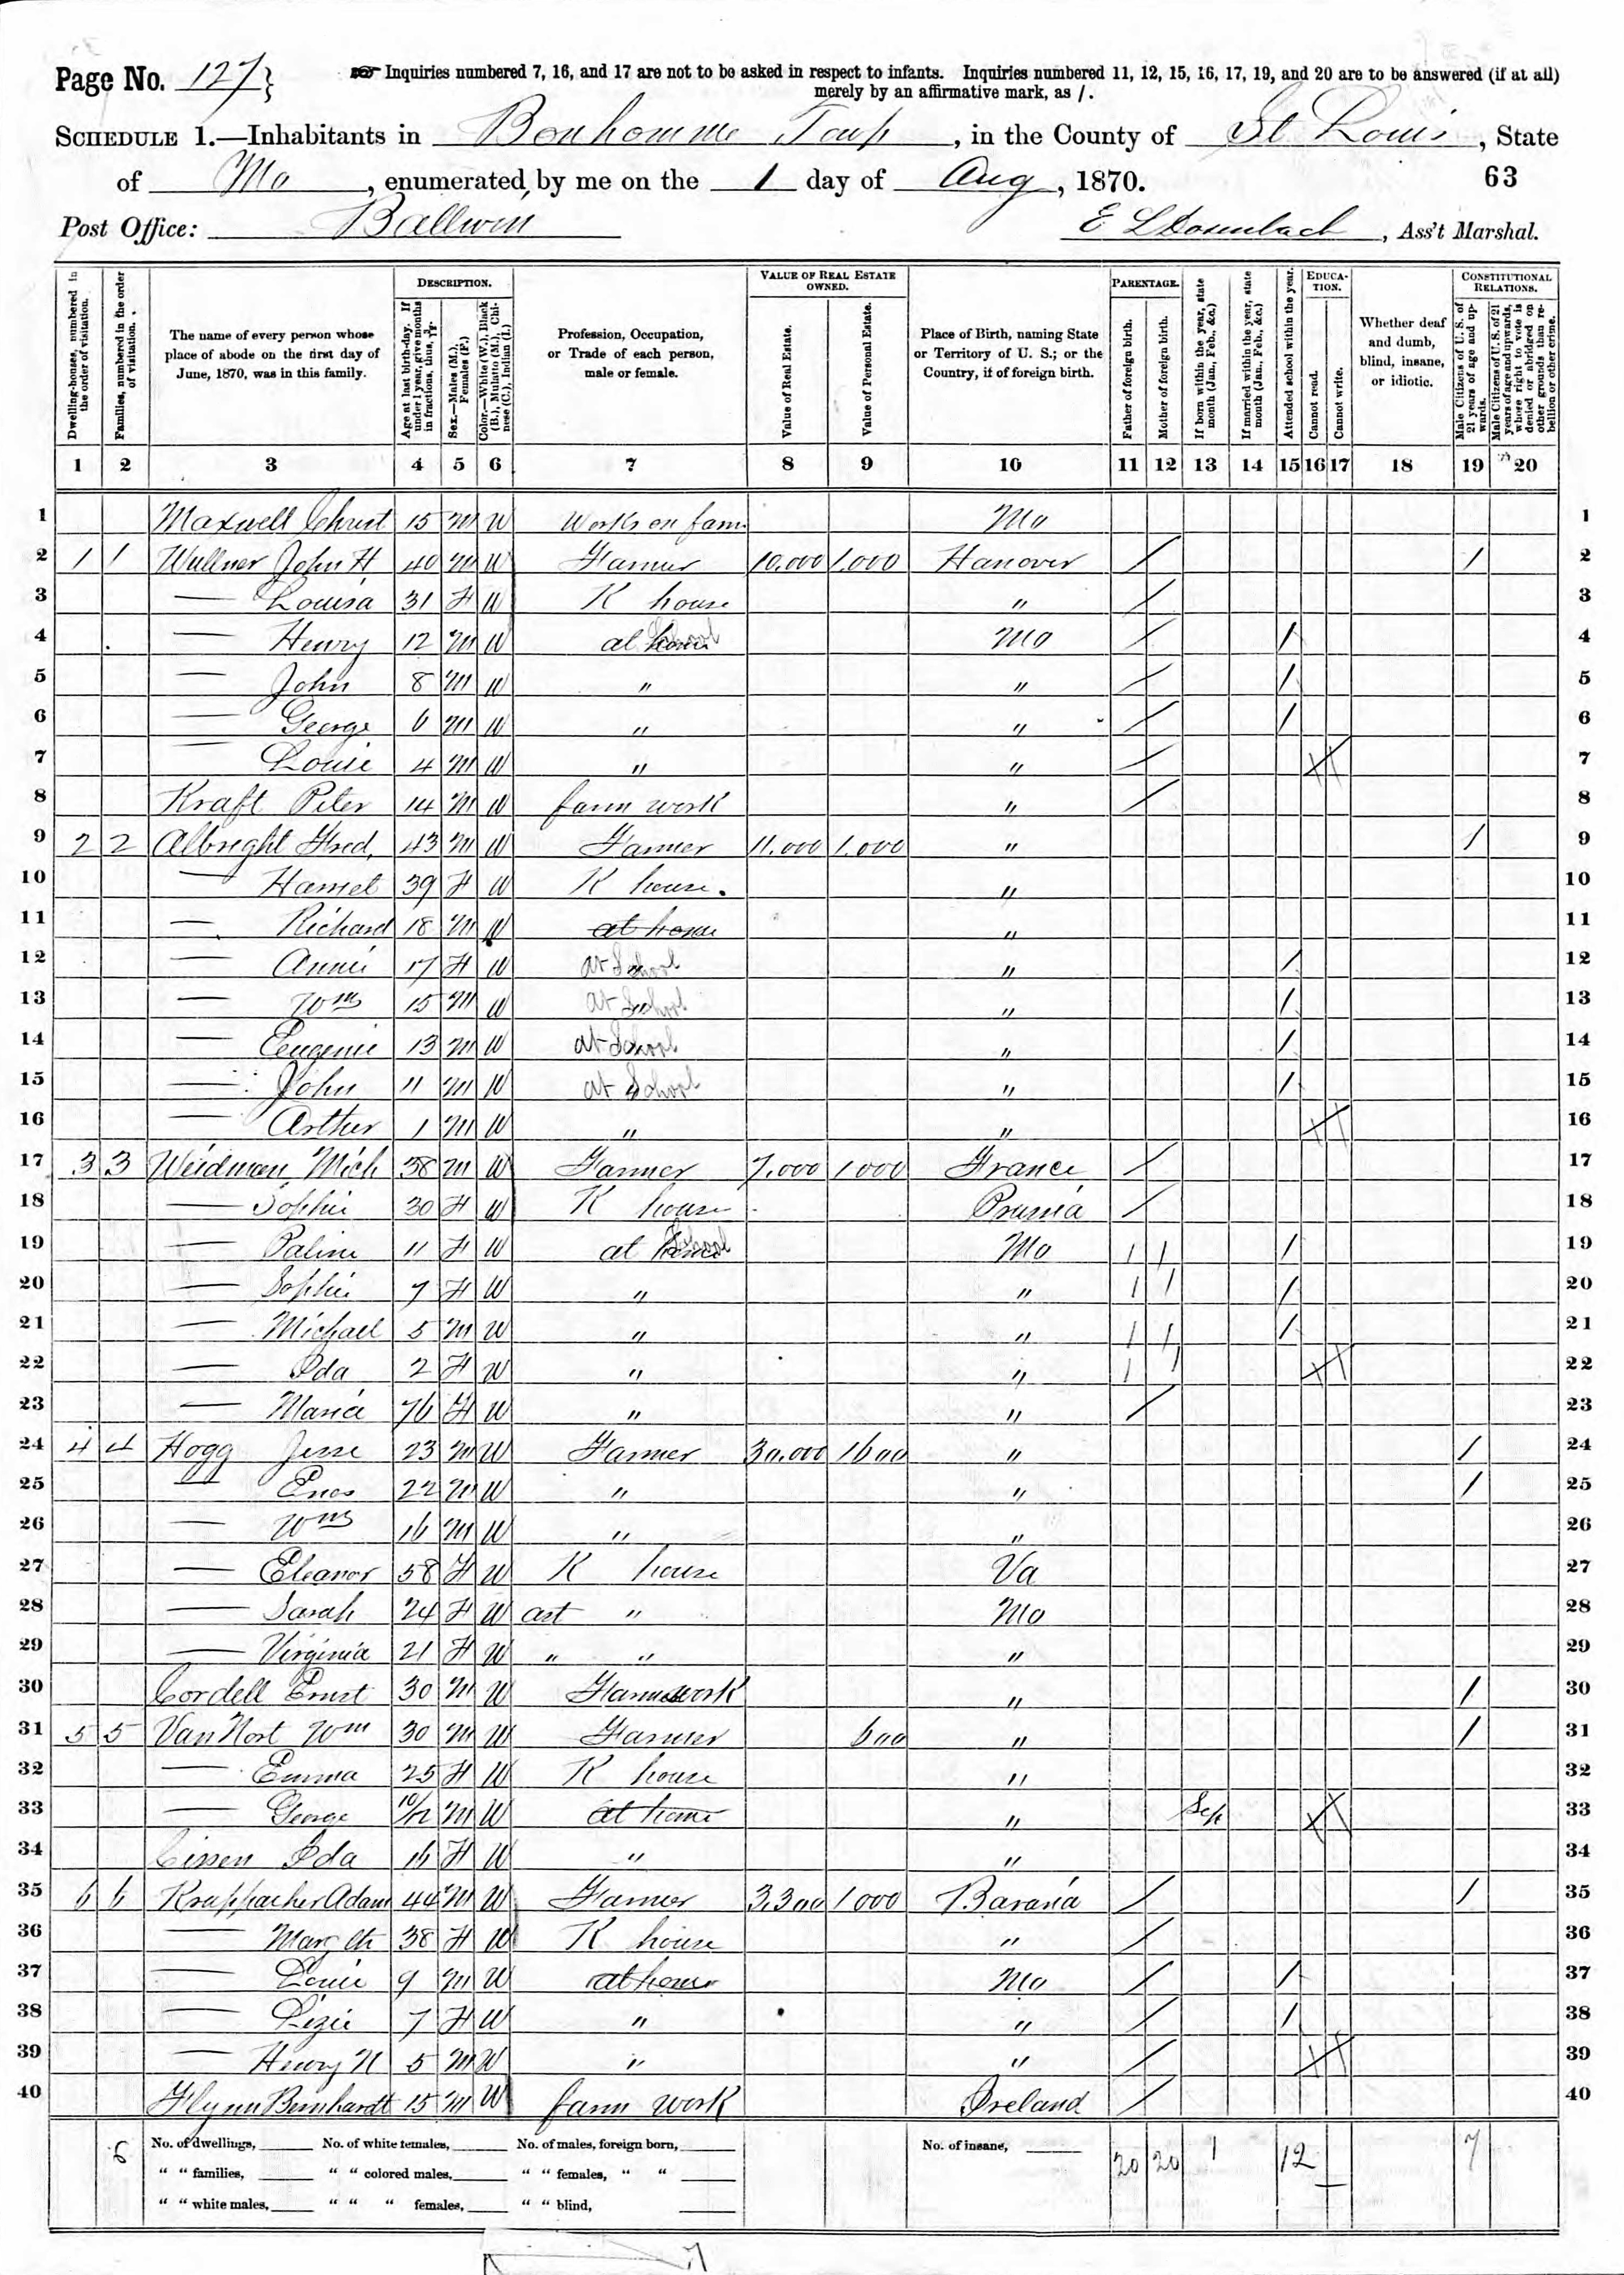 Page No. 127}
☞ Inquiries numbered 7, 16, and 17 are not to be asked in respect to infants. Inquiries numbered 11, 12, 15, 16, 17, 19, and 20 are to be answered (if at all)
merely by an affirmative mark, as /.
SCHEDULE 1.—Inhabitants in Bonhomme Twp, in the County of St Louis, State
of Mo, enumerated by me on the 1 day of Aug, 1870. 63
Post Office: Ballwin E L , Ass't Marshal.
Dwelling-houses, numbered in the order of visitation.
Families, numbered in the order of visitation.
The name of every person whose place of abode on the first day of June, 1870, was in this family.
DESCRIPTION.
Age at last birth-day. If under 1 year, give months in fractions, thus, 3/12.
Sex.—Males (M.), Females (F.)
Color.—White (W.), Black (B.), Mulatto (M.), Chinese (C.), Indian (I.)
Profession, Occupation, or Trade of each person, male or female.
VALUE OF REAL ESTATE OWNED.
Value of Real Estate.
Value of Personal Estate.
Place of Birth, naming State or Territory of U. S.; or the Country, if of foreign birth.
PARENTAGE.
Father of foreign birth.
Mother of foreign birth.
If born within the year, state month (Jan., Feb., &c.)
If married within the year, state month (Jan., Feb., &c.)
Attended school within the year.
EDUCATION.
Cannot read.
Cannot write.
Whether deaf and dumb, blind, insane, or idiotic.
CONSTITUTIONAL RELATIONS.
Male Citizens of U. S. of 21 years of age and upwards.
Male Citizens of U. S. of 21 years of age and upwards, whose right to vote is denied or abridged on other grounds than rebellion or other crime.
1 2 3 4 5 6 7 8 9 10 11 12 13 14 15 16 17 18 19 20
1 Maxwell Christ 15 M W Works on farm Mo 1
2 1 1 Wullner John H 40 M W Farmer 10,000 1,000 Hanover / 1 2
3 — Louisa 31 F W K house " / 3
4 — Henry 12 M W at School Mo / / 4
5 — John 8 M W " " / / 5
6 — George 6 M W " " / / 6
7 — Louie 4 M W " " / X X 7
8 Kraft Peter 14 M W farm work " / 8
9 2 2 Albright Fred. 43 M W Farmer 11,000 1,000 " 1 9
10 — Harriet 39 F W K house. " 10
11 — Richard 18 M W at home " 11
12 — Annie 17 F W at School " / 12
13 — Wm 15 M W at School " / 13
14 — Eugenie 13 M W at School " / 14
15 — John 11 M W at School " / 15
16 — Arthur 1 M W " " X X 16
17 3 3 Weidman Mich 58 M W Farmer 7,000 1000 France / 17
18 — Sophie 30 F W K house Prussia / 18
19 — Paline 11 F W at School Mo 1 1 / 19
20 — Sophie 7 F W " " 1 1 / 20
21 — Michael 5 M W " " 1 1 / 21
22 — Ida 2 F W " " 1 1 X X 22
23 — Maria 76 F W " " / 23
24 4 4 Hogg Jesse 23 M W Farmer 30,000 1600 " 1 24
25 — Enos 22 M W " " 1 25
26 — Wm 16 M W " " 26
27 — Eleanor 58 F W K house Va 27
28 — Sarah 24 F W ast " Mo 28
29 — Virginia 21 F W " " " 29
30 Cordell Ernst 30 M W Farmwork " 1 30
31 5 5 VanNort Wm 30 M W Farmer 600 " 1 31
32 — Emma 25 F W K house " 32
33 — George 10/12 M W at home " Sep X X 33
34 Ida 16 F W " " 34
35 6 6 Adam 44 M W Farmer 3,300 1000 Bavaria / 1 35
36 — Margth 38 F W K house " / 36
37 — Louie 9 M W at home Mo / / 37
38 — Lizie 7 F W " " / / 38
39 — Henry N 5 M W " " / X X 39
40 Flynn Bernhardt 15 M W farm work Ireland / 40
6 No. of dwellings, No. of white females, No. of males, foreign born, No. of insane, 20 20 1 12 7
" " families, " " colored males, " " females, " "
" " white males, " " " females, " " blind,